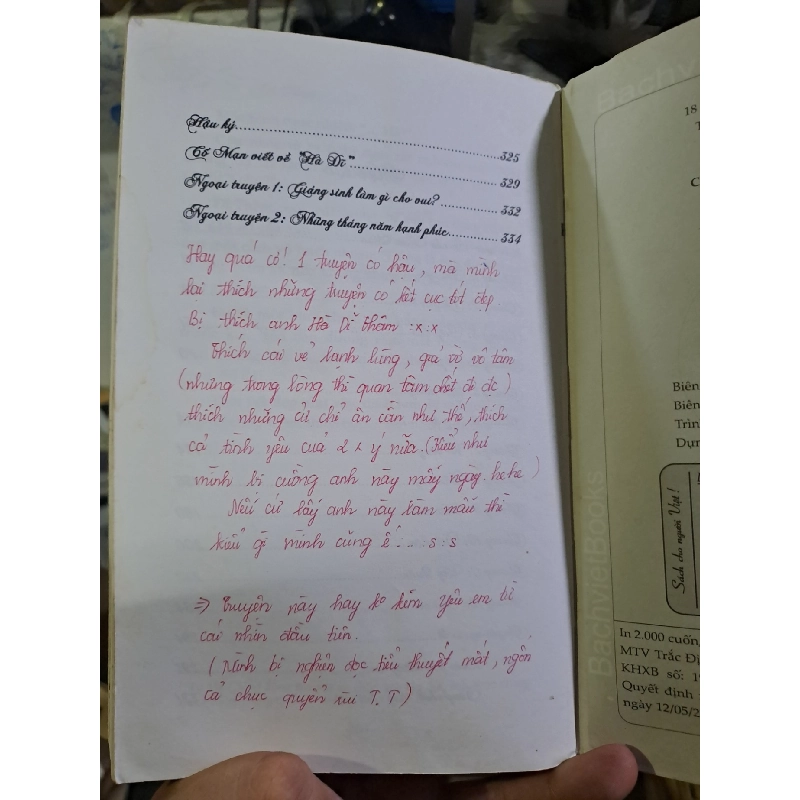 Hậu ký..........325
Cố Mạn viết về "Hà Dĩ"..........329
Ngoại truyện 1: Giáng sinh làm gì cho vui?..........332
Ngoại truyện 2: Những tháng năm hạnh phúc..........334
Hay quá cơ! 1 truyện có hậu, mà mình
lại thích những truyện có kết cục tốt đẹp.
Bị thích anh Hà Dĩ Thâm :x:x
Thích cái vẻ lạnh lùng, quá vô tâm
(nhưng trong lòng thì quan tâm chết đi đc)
thích những cử chỉ ân cần như thế, thích
cả tình yêu của 2 ý nữa. (Kiểu như
mình bị cuồng anh này mấy ngày. hehe)
Nếu cứ lấy anh này làm mẫu thì
kiểu gì mình cũng ế.... :s:s
=> Truyện này hay ko kém yêu em từ
cái nhìn đầu tiên.
(Mình bị nghiện đọc tiểu thuyết mất, ngốn
cả chục quyển rùi T.T)
BachvietBooks
18
Biên
Biên
Trìn
Dựn
Sách cho người Việt!
In 2.000 cuốn,
MTV Trắc Đị
KHXB số: 19
Quyết định
ngày 12/05/2